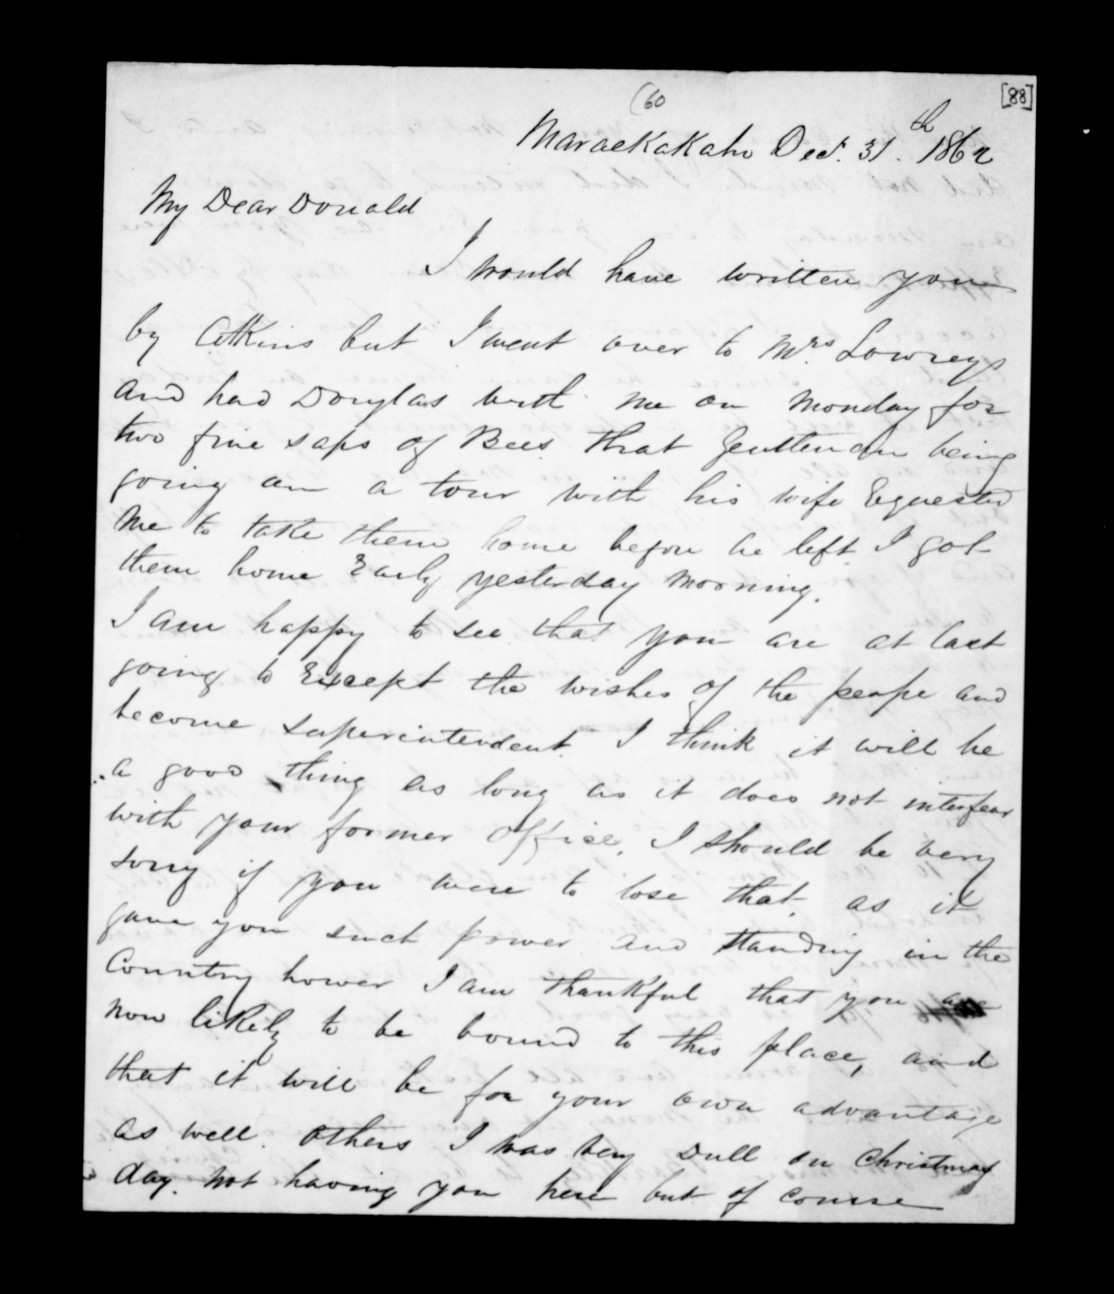 (60
[88]
Maraekakaho Dect. 31th. 1862
My Dear Donald
I would have written you
by Atkins but I went over to Mrs Lowreys
and had Douglas with me on Monday for
two fine saps of Bees that Gentleman being
going on a tour with his wife Equested
me to take them home before he left I got
them home Early yesterday morning.
I am happy to see that you are at last
going to Except the wishes of the peape and
become superintendent I think it will be
a good thing as long as it does not interfear
with your former office. I should be very
sorry if you were to lose that as it
gave you such power and standing in the
Country hower I am thankful that you are
now likely to be bound to this place, and
that it will be for your own advantage
as well. others I was very Dull on Christmas
day. not having you here but of course